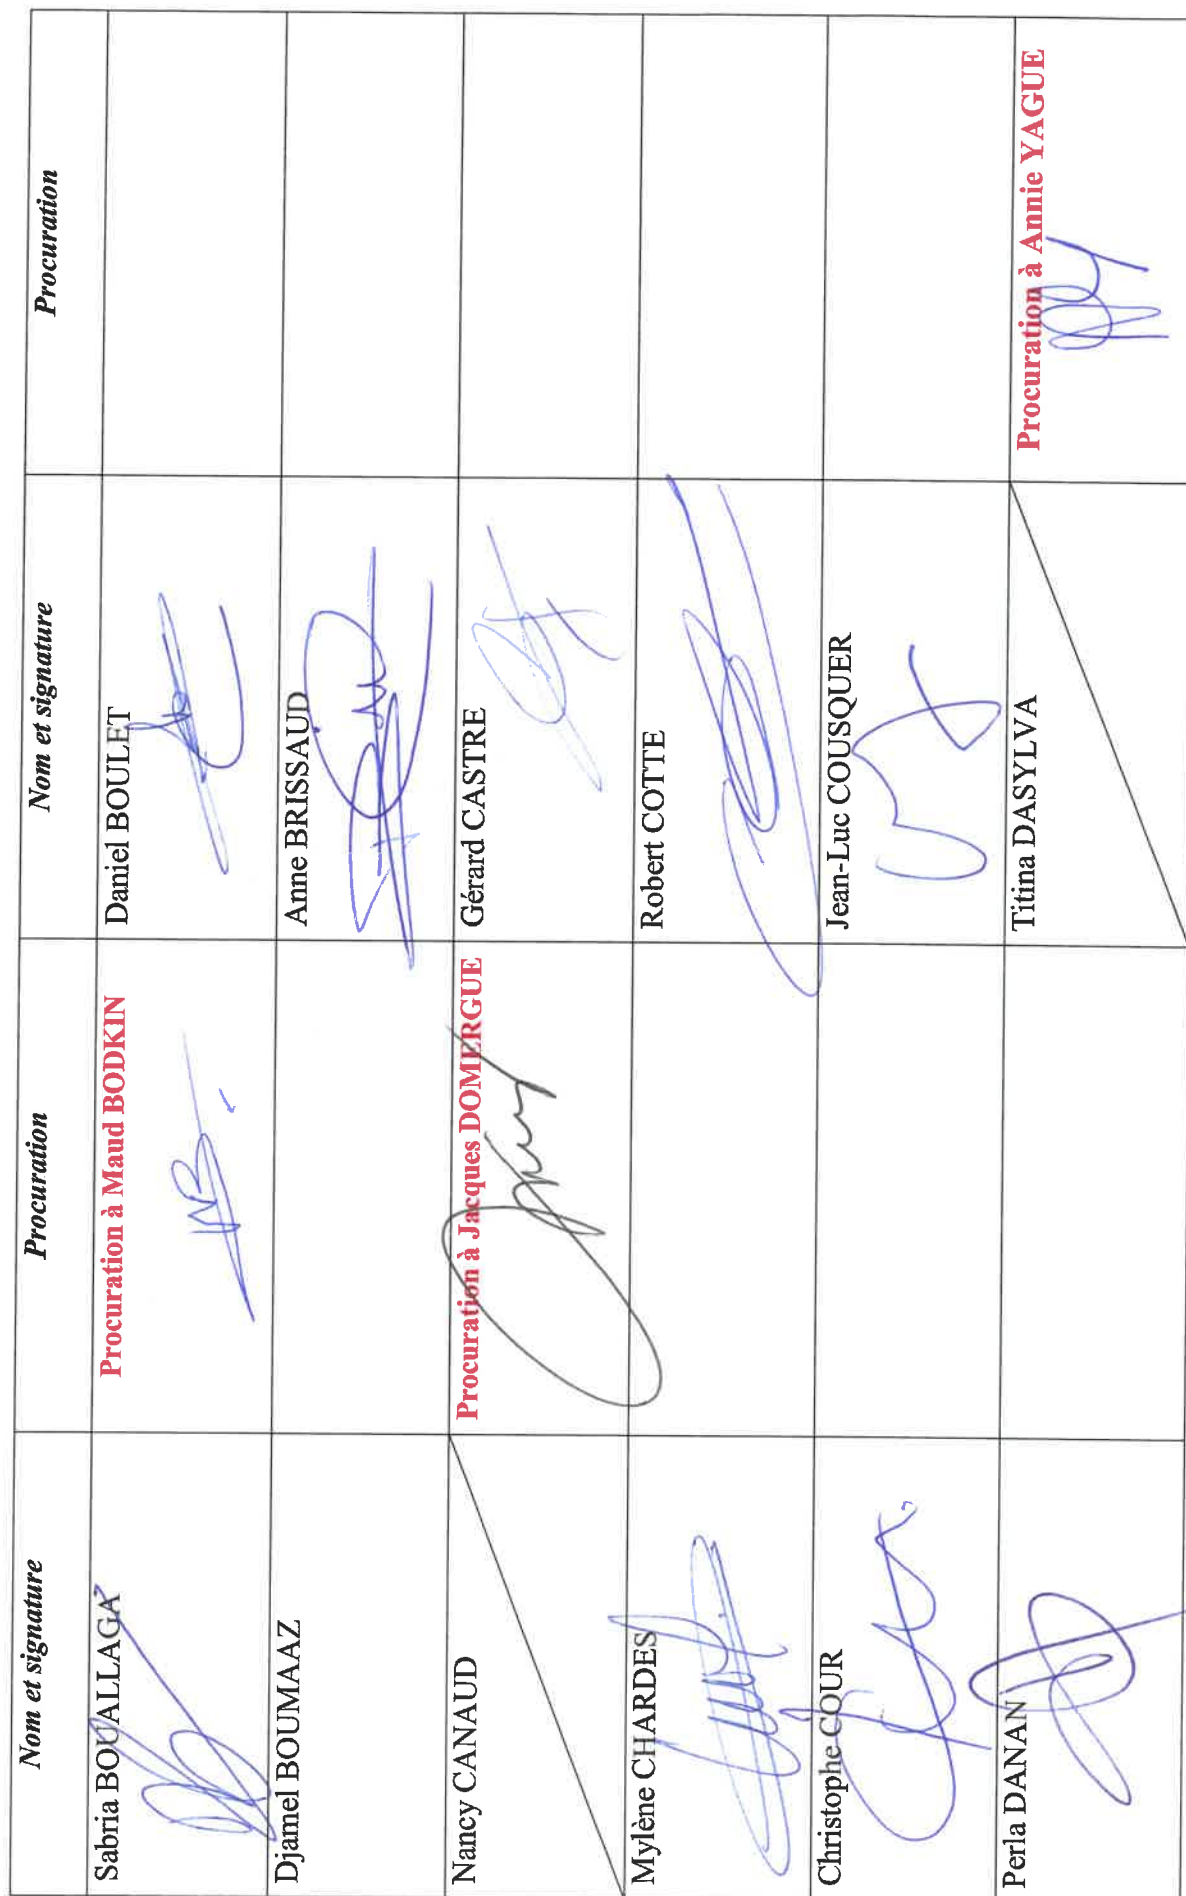 Nom et signature
Procuration
Nom et signature
Procuration
Sabria BOUALLAGA
Procuration à Maud BODKIN
Daniel BOULET
Djamel BOUMAAZ
Anne BRISSAUD
Nancy CANAUD
Procuration à Jacques DOMERGUE
Gérard CASTRE
Mylène CHARDES
Robert COTTE
Christophe COUR
Jean-Luc COUSQUER
Perla DANAN
Titina DASYLVA
Procuration à Annie YAGUE